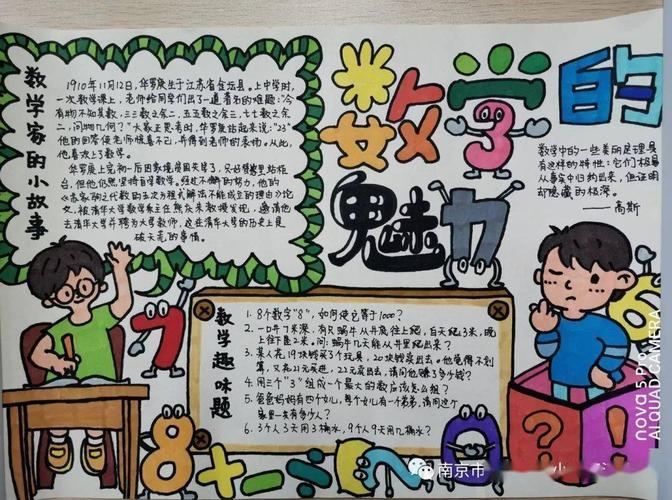 数学的
魅力
数学家的小故事
1910年11月12日,华罗庚生于江苏省金坛县。上中学时,
一次数学课上,老师给同学们出了一道著名的难题:"今
有物不知其数,三三数之余二,五五数之余三,七七数之余
二,问物几何?"大家正思考时,华罗庚站起来说:"23"
他的回答使老师惊喜不已,并得到老师的表扬。从此,
他喜欢上了数学。
华罗庚上完初一后因家境贫困失学了,只好替家里站柜
台,但他仍然坚持自学数学。经过不懈的努力,他的
《苏家驹之代数的五次方程式解法不能成立的理由》论
文,被清华大学数学系主任熊庆来教授发现,邀请他
去清华大学并聘为大学教师,这在清华大学的历史上是
破天荒的事情。
数学中的一些美丽定理具
有这样的特性:它们极易
从事实中归纳出来,但证明
却隐藏的极深。
——高斯
数学趣味题
1. 8个数字"8",如何使它等于1000?
2. 一口井7米深,有只蜗牛从井底往上爬,白天爬3米,晚
上往下坠2米。问:蜗牛几天能从井里爬出来?
3. 某人花19块钱买了个玩具,20块钱卖出去。他觉得不划
算,又花21元买进,22元卖出去,请问他赚了多少钱?
4. 用三个"3"组成一个最大的数应该怎么组?
5. 爸爸妈妈有四个女儿,每个女儿有一个弟弟,请问这个
家里一共有多少人?
6. 3个人3天用3桶水,9个人9天用几桶水?
7
8
8+-÷
2
0
?
!
nova 5 Pro
AI QUAD CAMERA
南京市
小